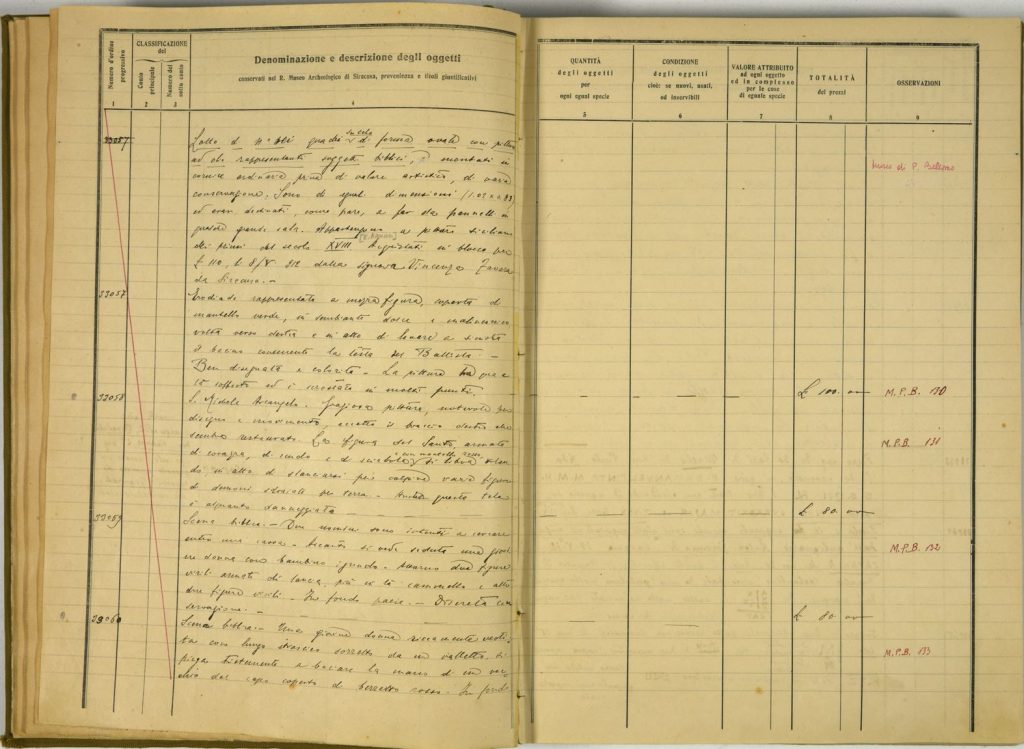 Numero d'ordine progressivo
CLASSIFICAZIONE del
Conto principale
Numero del sotto conto
Denominazione e descrizione degli oggetti
conservati nel R. Museo Archeologico di Siracusa, provenienza e titoli giustificativi
1 2 3 4
QUANTITÀ degli oggetti per ogni eguai specie
CONDIZIONE degli oggetti cioè: se nuovi, usati, od inservibili
VALORE ATTRIBUITO ad ogni oggetto ed in complesso per le cose di eguale specie
TOTALITÀ dei prezzi
OSSERVAZIONI
5 6 7 8 9
33057
Lotto di n° sei quadri su tela di forma ovale con pittura
ad olio rappresentanti soggetti biblici, montati in
cornice ordinaria priva di valore artistico, di varia
conservazione. Sono di eguali dimensioni
ed eran destinati, come pare, a far da pannelli in
qualche grande sala. Appartengono a pittore siciliano
dei primi del secolo XVIII Acquistati in blocco per
£ 110, dalla signora Vincenza
da Siracusa. –
Museo di P. Bellomo
33057 Erodiade rappresentata a mezza figura, coperta di
mantello verde, in sembiante dolce e malinconico
volta verso destra e in atto di tenere a sinistra
il bacino contenente la testa del Battista. –
Ben disegnata e colorita. – La pittura ha già
sofferto ed è scrostata in molti punti. £ 100.
M.P.B. 130
33058 S. Michele Arcangelo. Graziosa pittura, notevole per
disegno e movimento, eccetto il braccio destro che
sembra restaurato. La figura del Santo, armato
di corazza, di scudo e di sciabola con mantello rosso
in atto di slanciarsi per colpire varie figure
di demoni sdraiati per terra. – Anche questa tela
è alquanto danneggiata £ 80.
M.P.B. 131
33059 Scena biblica. – Due uomini sono intenti a cercare
entro una cassa. – Accanto si vede seduta una giovi
ne donna con bambino ignudo. – Attorno due figure
virili armate di lancia, più in là cammello e altre
due figure virili. – In fondo paese. – Discreta con
servazione. – £ 80.
M.P.B. 132
33060 Scena biblica. – Una giovine donna riccamente vesti
ta con lungo strascico sorretto da un valletto si
piega a baciare la mano di un vec
chio dal capo coperto di berretto rosso. – In fondo
M.P.B. 133